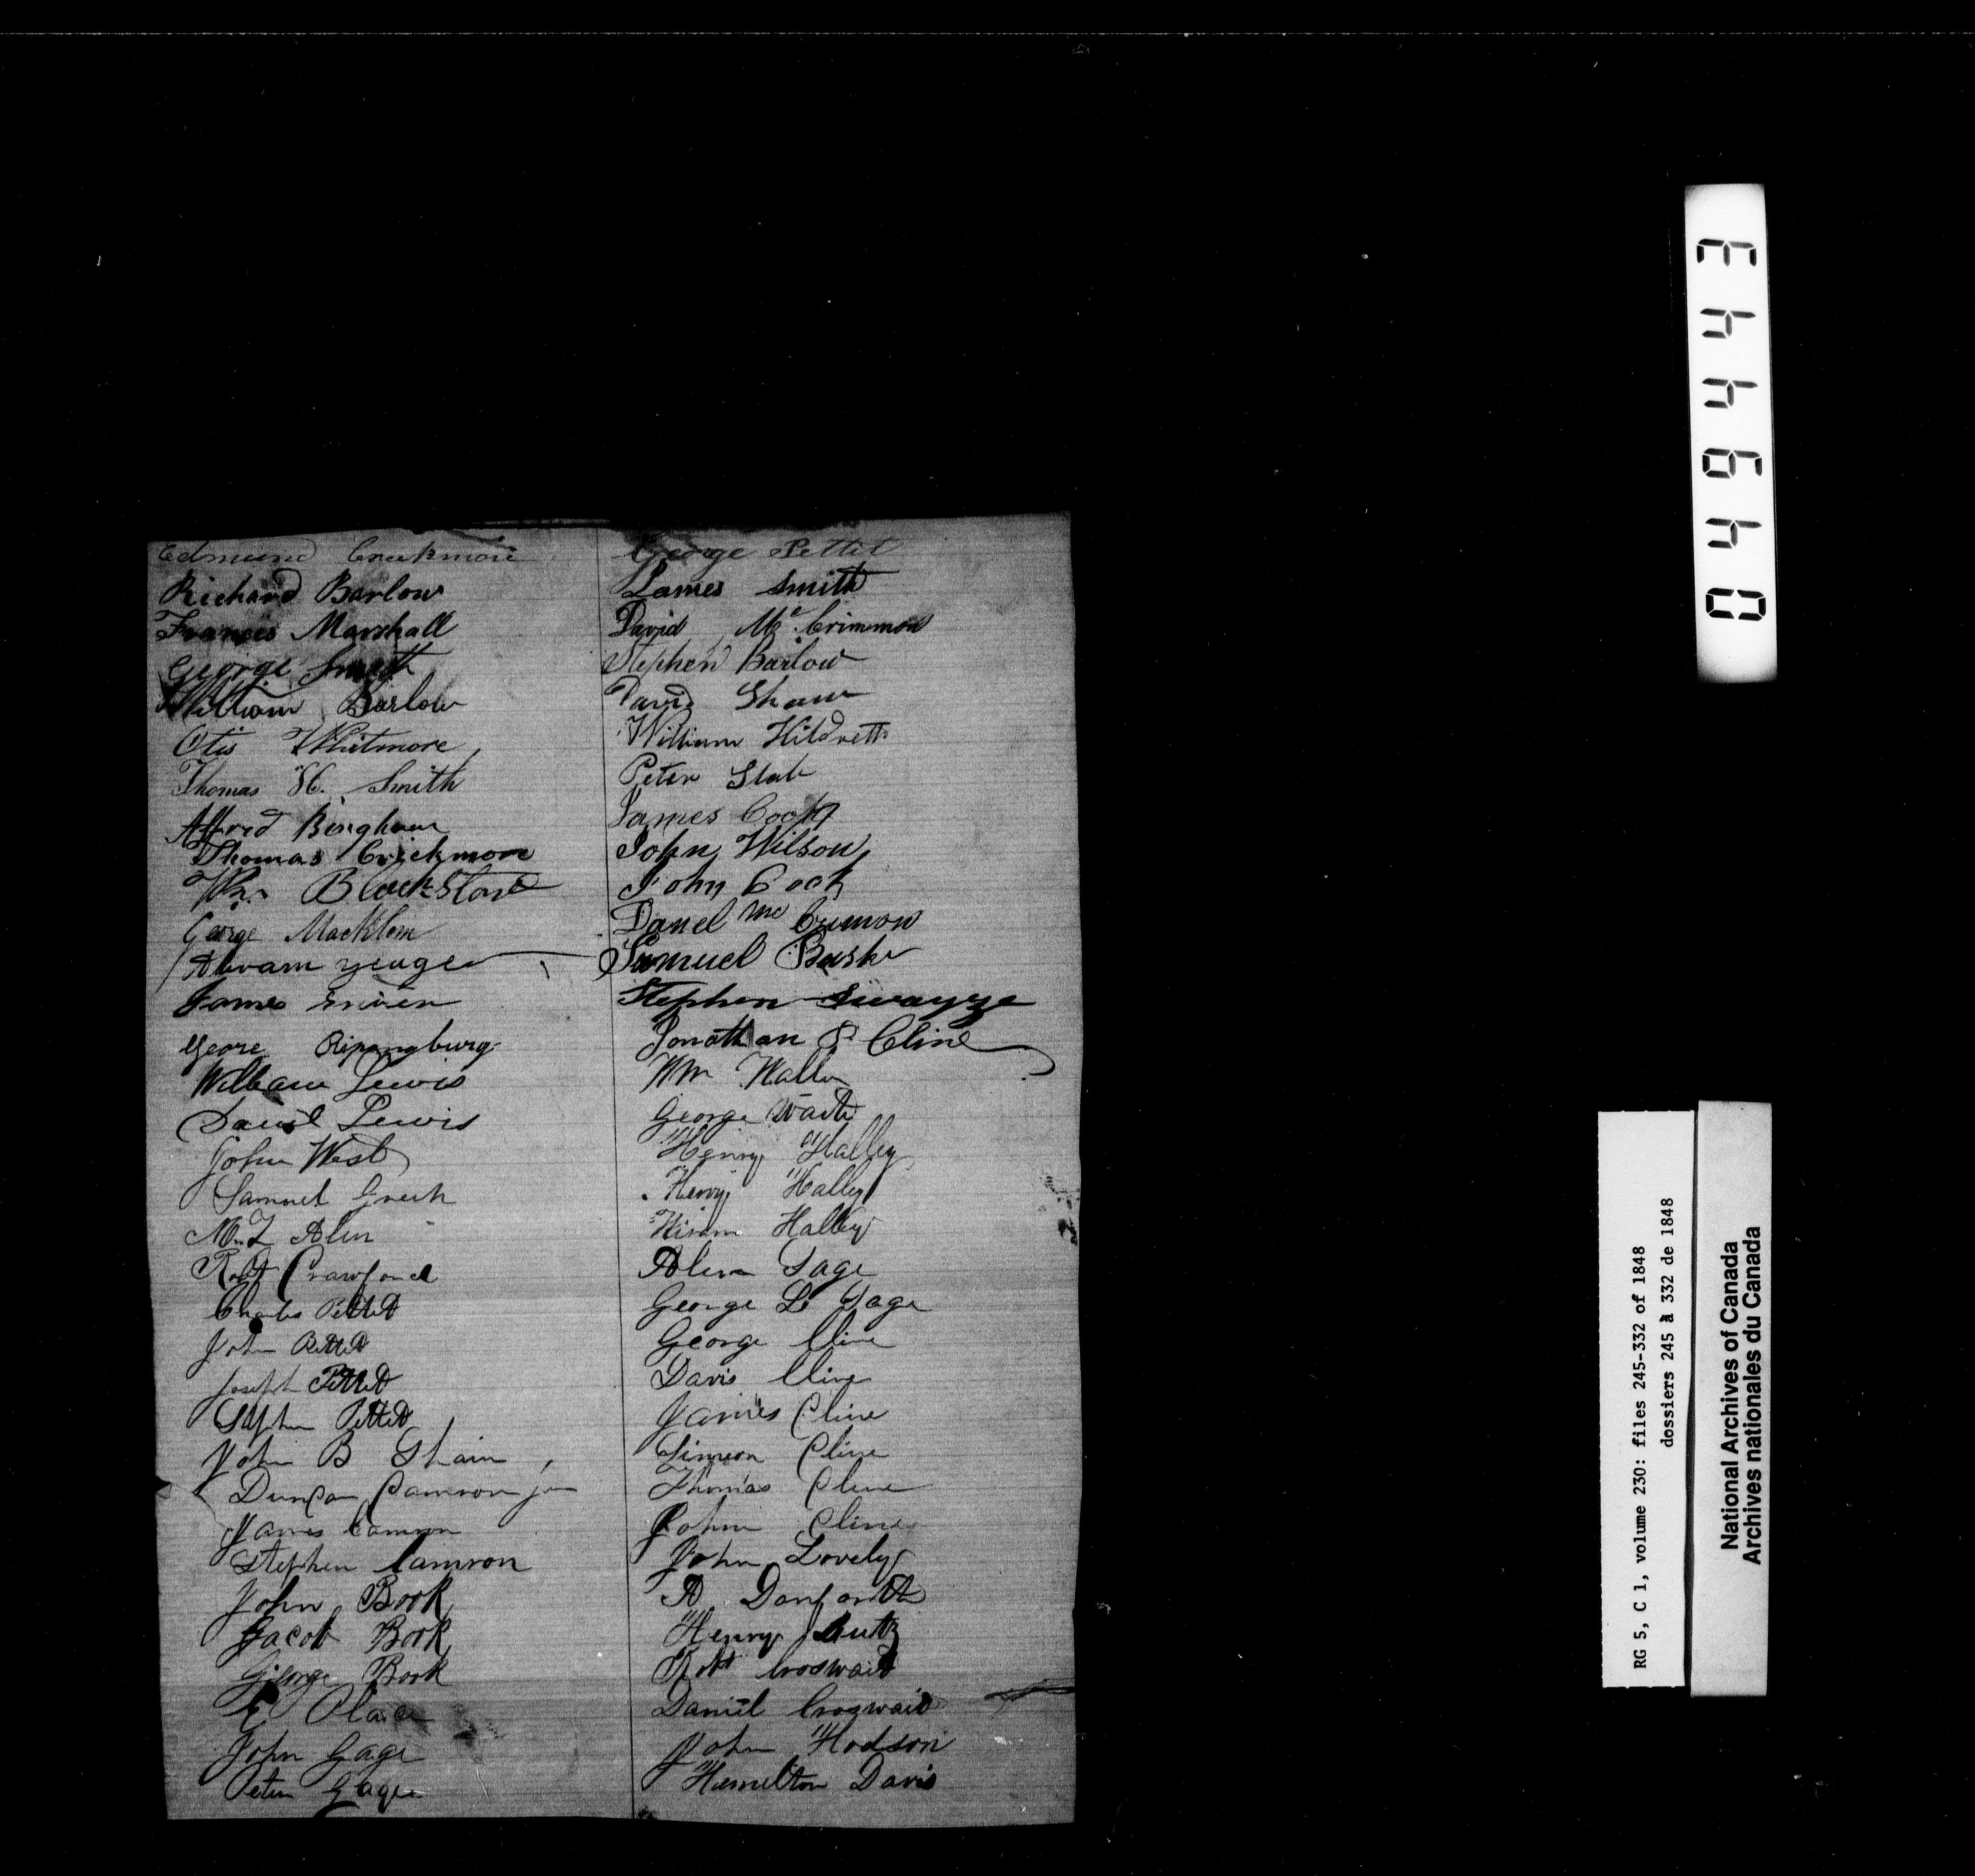 Edmund Crickmore
Richard Barlow
Frances Marshall
George Smith
William Barlow
Otis Whitmore
Thomas H. Smith
Alfred Bingham
Thomas Crickmore
Wm. Blackstone
George Macklem
Abram Yeager
James
Geore
William Lewis
Daniel Lewis
John West
Samuel Green
M. Z Alen
Robt Crawford
Charles Pettet
John Pettet
Joseph Pettet
Stephen Pettet
John B Shain
Duncan Camron jun
James Camron
Stephen Camron
John Book
Jacob Book
George Book
Place
John Gage
Peter Gage
George Pettit
James Smith
David Mc Crimmon
Stephen Barlow
David Shaw
William Hildrett
Peter Slate
James Cook
John Wilson
John Cook
Danel Mc Crimon
Samuel
Stephen Swayze
Jonathan Cline
Wm
George Waite
Henry Halley
Henry Halley
Hiram Halley
Alen Gage
George L Gage
George Cline
Davis Cline
James Cline
Simeon Cline
Thomas Cline
John Cline
John Lovely
A Danforth
Henry Lutz
Robt Croswait
Daniel Croswait
John Hodson
Hemelton Davis
044443
RG 5, C 1, volume 230: files 245-332 of 1848
dossiers 245 à 332 de 1848
National Archives of Canada
Archives nationales du Canada